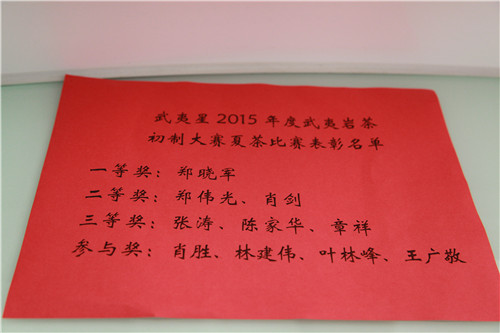 武夷星2015年度武夷岩茶
初制大赛夏茶比赛表彰名单
一等奖：郑晓军
二等奖：郑伟光、肖剑
三等奖：张涛、陈家华、章祥
参与奖：肖胜、林建伟、叶林峰、王广敬